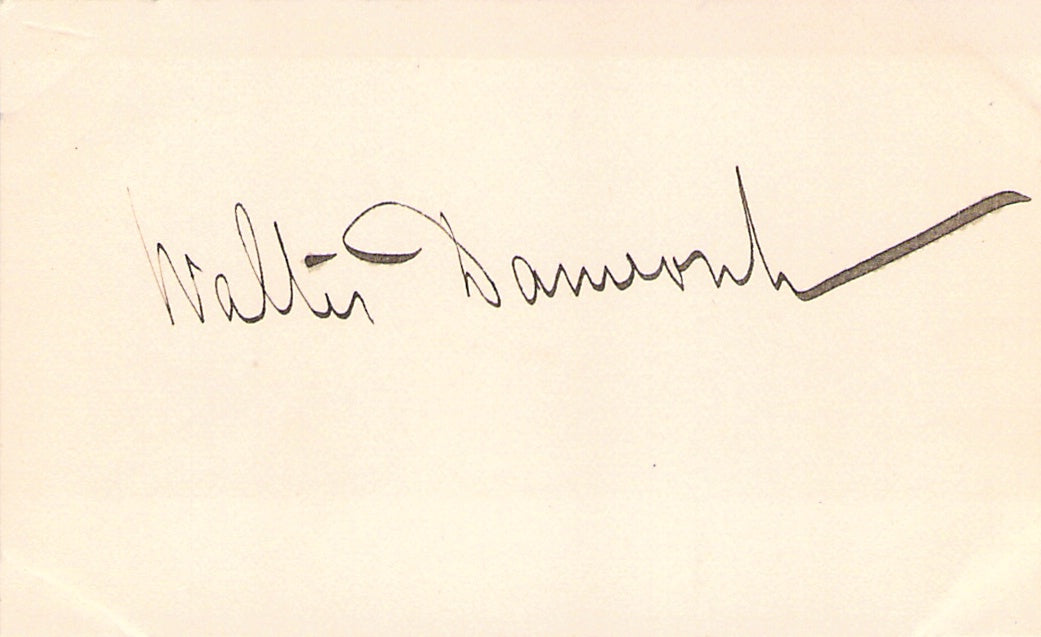 Walter Damrosch